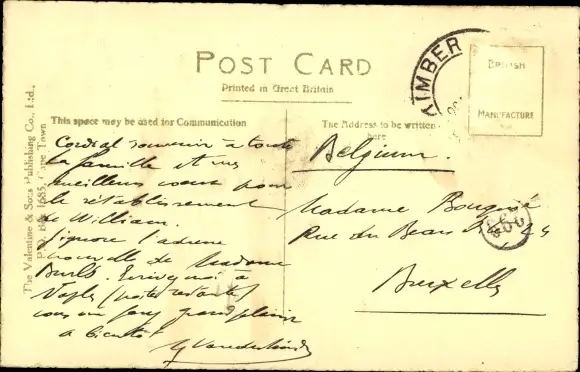 POST CARD
Printed in Great Britain
BRITISH
MANUFACTURE
KIMBER
The Valentine & Sons Publishing Co., Ltd.,
P.O. Box 1685, Cape Town
This space may be used for Communication
The Address to be written here
Cordial souvenir à toute
la famille et mes
meilleurs voeux pour
le rétablissement
de William.
J'ignore l'adresse
nouvelle de Madame
Ecrivez moi à
Naples (poste restante)
vous me ferez grand plaisir
à bientôt
Belgium.
Madame
Rue du Beau 24
Bruxelles